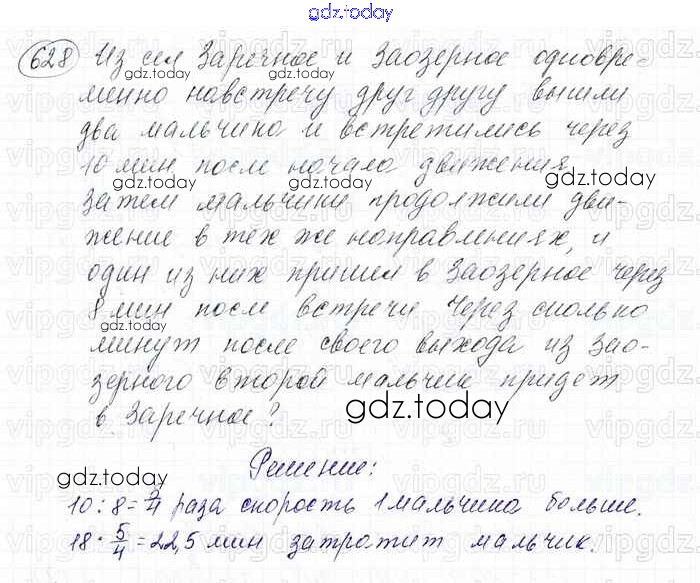 gdz.today
628 Из сел Заречное и Заозерное одновре-
менно навстречу друг другу вышли
два мальчика и встретились через
10 мин после начала движения.
Затем мальчики продолжили дви-
жение в тех же направлениях, и
один из них пришел в Заозерное через
8 мин после встречи. Через сколько
минут после своего выхода из Зао-
зерного второй мальчик придет
в Заречное?
Решение:
10 : 8 = 5/4 раза скорость 1 мальчика больше.
18 · 5/4 = 22,5 мин затратит мальчик.
gdz.today
gdz.today
gdz.today
gdz.today
gdz.today
gdz.today
gdz.today